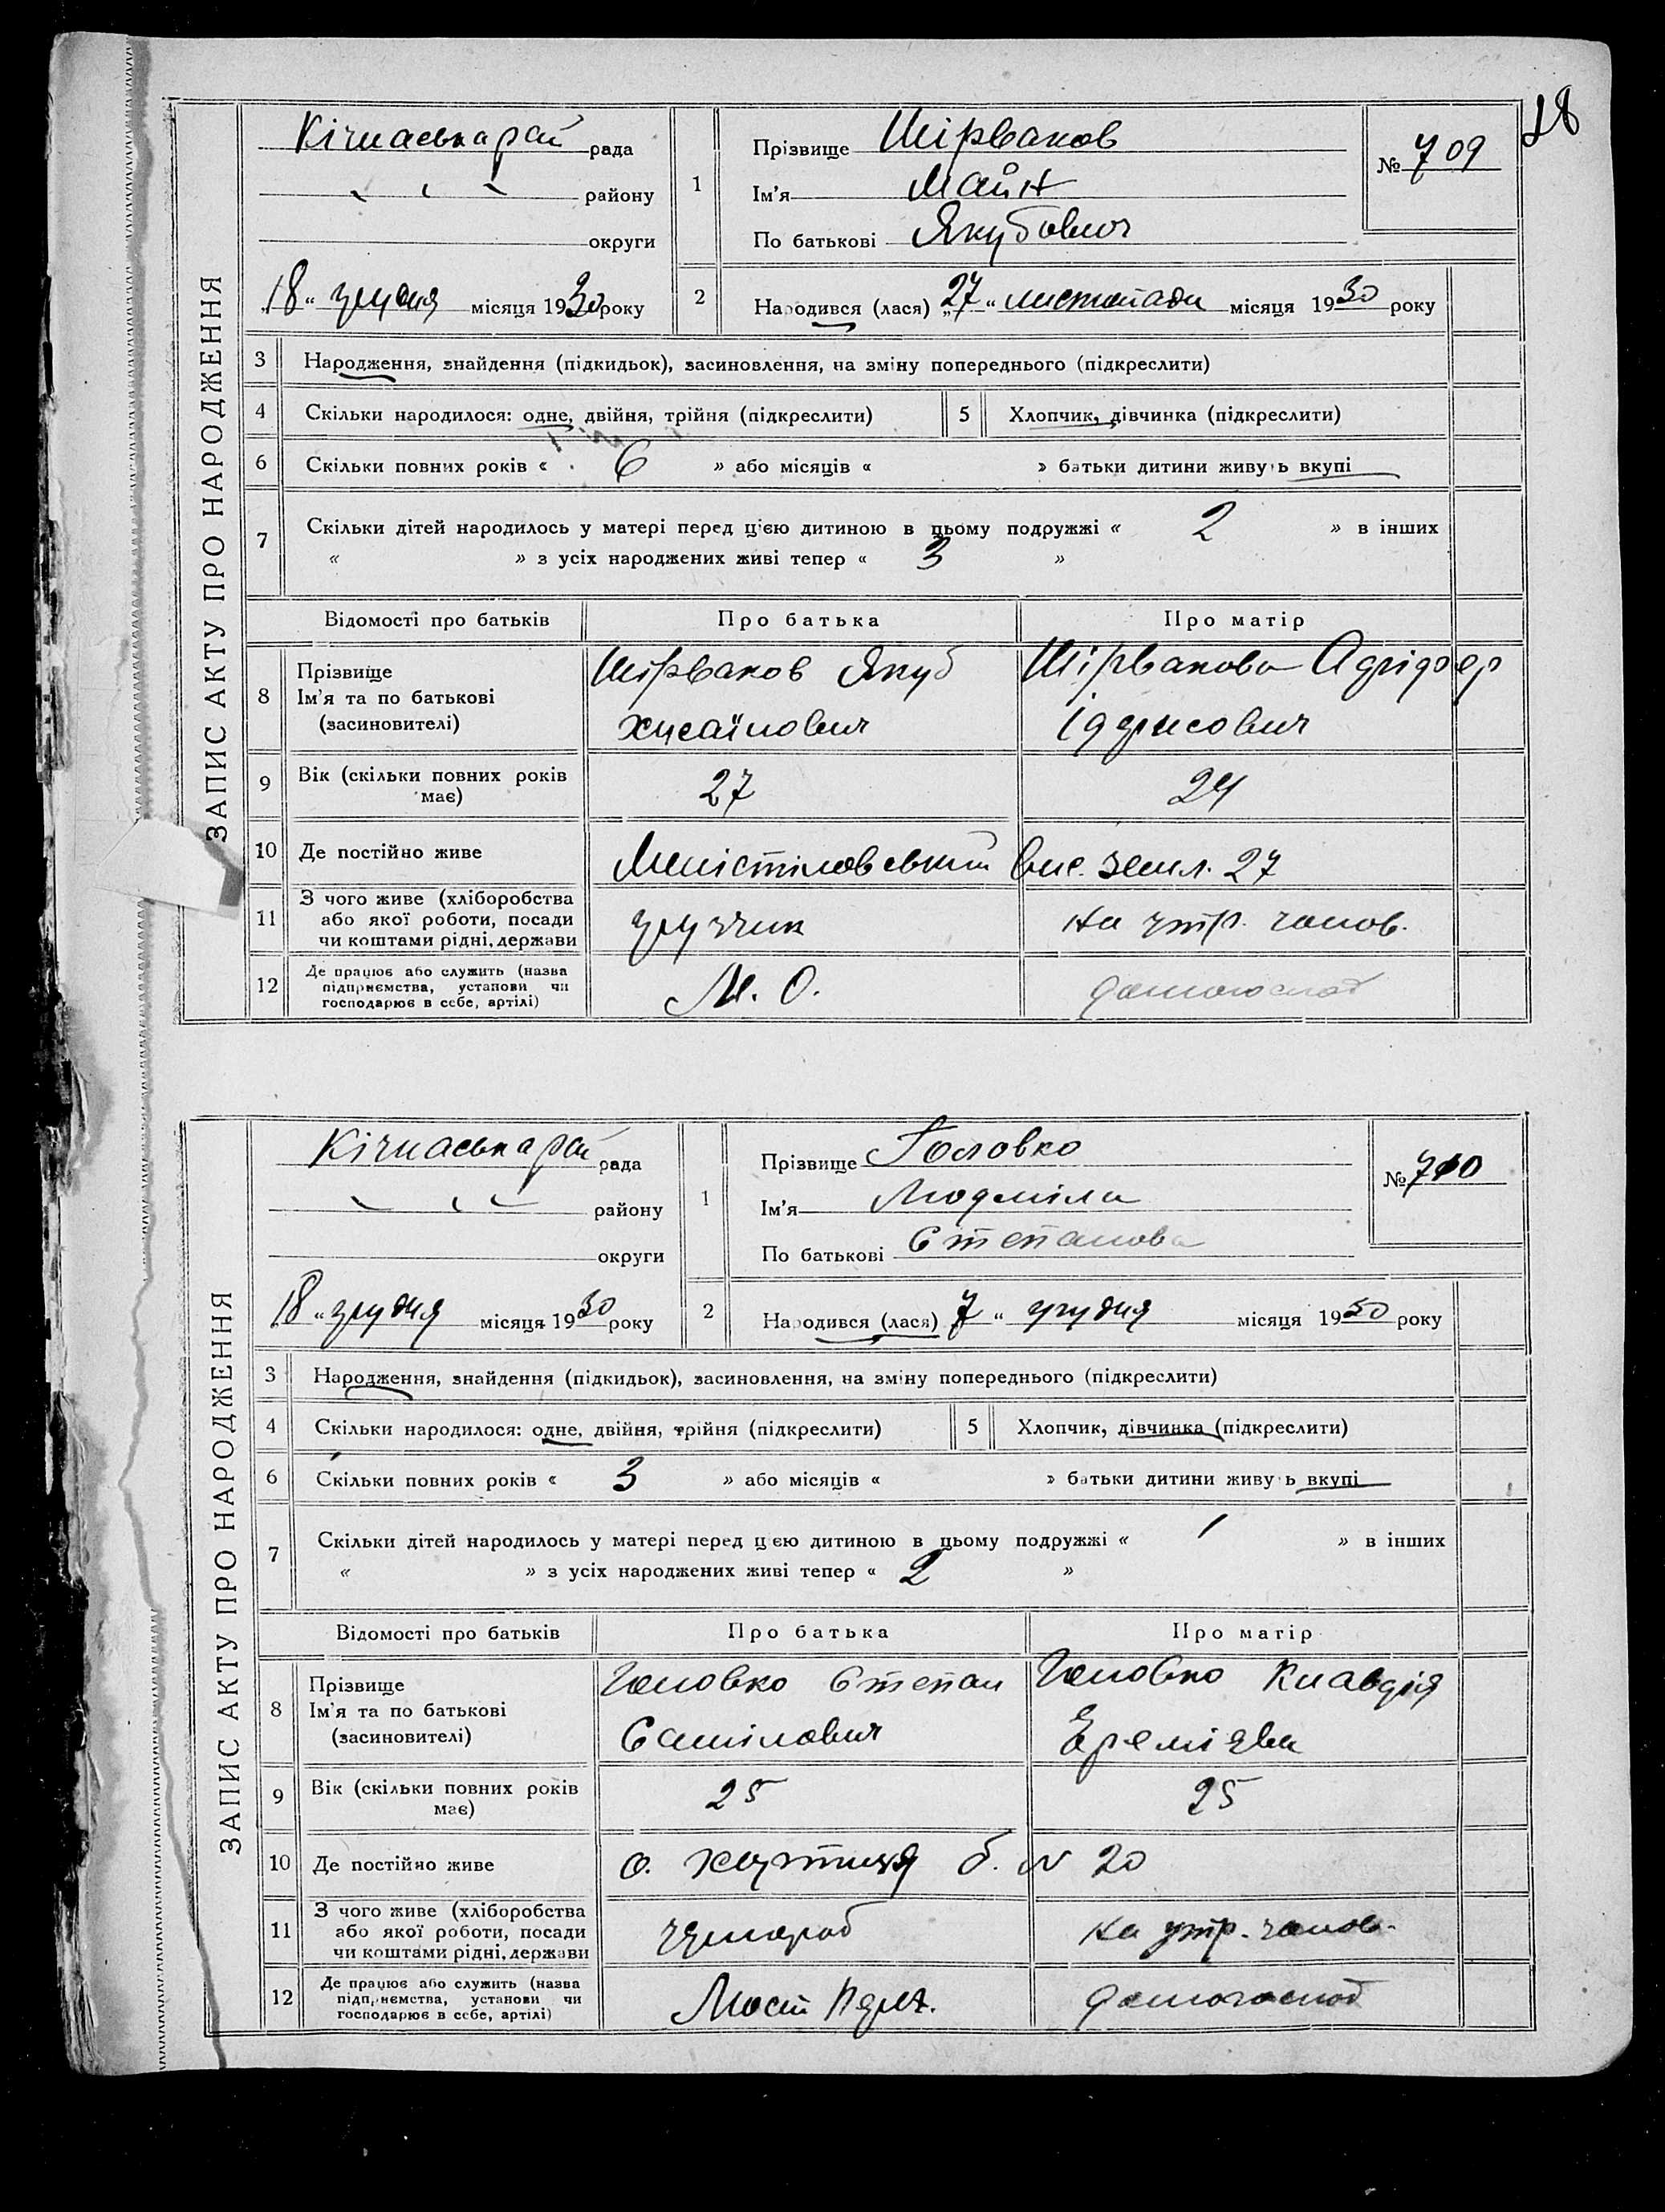 18
ЗАПИС АКТУ ПРО НАРОДЖЕННЯ
Кічкаська рай рада
района
округи
18 „ грудня місяця 1930 року
1 Прізвище Шірваков
Ім'я Майн
По батькові Якубович
№ 709
2 Народився (лася) „27 “ листопада місяця 1930 року
3 Народження, знайдення (підкидьок), засиновлення, на зміну попереднього (підкреслити)
4 Скільки народилося: одне, двійня, трійня (підкреслити) 5 Хлопчик, дівчинка (підкреслити)
6 Скільки повних років « 6 » або місяців « » батьки дитини живуть вкупі
7 Скільки дітей народилось у матері перед цією дитиною в цьому подружжі « 2 » в інших
« » з усіх народжених живі тепер « 3 »
Відомості про батьків Про батька Про матір
8 Прізвище Ім'я та по батькові (засиновителі)
Шірваков Якуб Хусаїнович
Шірвакова Ідрисович
9 Вік (скільки повних років має) 27 24
10 Де постійно живе вис. земл. 27
11 З чого живе (хліборобства або якої роботи, посади чи коштами рідні, держави
грузчик на утр. чолов.
12 Де працює або служить (назва підприємства, установи чи господарює в себе, артілі)
М. О. домогоспод
ЗАПИС АКТУ ПРО НАРОДЖЕННЯ
Кічкаська рай рада
району
округи
18 „ грудня місяця 1930 року
1 Прізвище Головко
Ім'я Людміла
По батькові Степанова
№ 710
2 Народився (лася) „7 “ грудня місяця 1930 року
3 Народження, знайдення (підкидьок), засиновлення, на зміну попереднього (підкреслити)
4 Скільки народилося: одне, двійня, трійня (підкреслити) 5 Хлопчик, дівчинка (підкреслити)
6 Скільки повних років « 3 » або місяців « » батьки дитини живуть вкупі
7 Скільки дітей народилось у матері перед цією дитиною в цьому подружжі « 1 » в інших
« » з усіх народжених живі тепер « 2 »
Відомості про батьків Про батька Про матір
8 Прізвище Ім'я та по батькові (засиновителі)
Головко Степан Самілович
Головко Клавдія Еремієва
9 Вік (скільки повних років має) 25 25
10 Де постійно живе о. Хортиця б. N 20
11 З чого живе (хліборобства або якої роботи, посади чи коштами рідні, держави
чорнороб на утр. чолов.
12 Де працює або служить (назва підприємства, установи чи господарює в себе, артілі)
Мост домогоспод